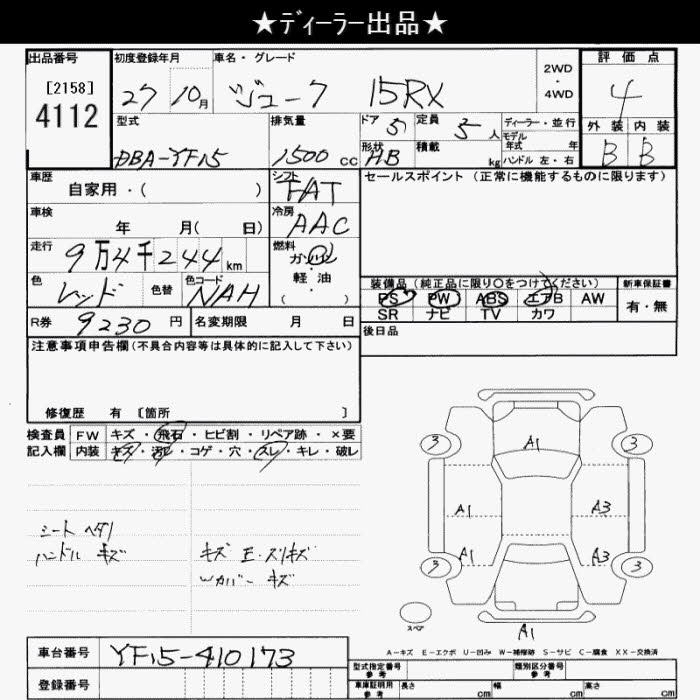 ★ディーラー出品★
出品番号 初度登録年月 車名・グレード 評価点
[2158] 2WD
4112 27 10月 ジューク 15RX ・ 4
4WD
型式 排気量 ドア 5 定員 5人 ディーラー・並行 外装 内装
モデル年式 年
DBA-YF15 1500cc 形状 HB 積載 kg ハンドル 左・右 B B
車歴 シフト セールスポイント(正常に機能するものに限ります)
自家用・( ) FAT
車検 冷房
年 月( 日) AAC
走行 9万4千244km 燃料
ガソリン
色 色替 色コード 軽油 装備品(純正品に限り○をつけてください) 新車保証書
レッド NAH ( ) PS PW ABS エアB AW 有・無
SR ナビ TV カワ
R券 9230円 名変期限 月 日 後日品
注意事項申告欄(不具合内容等は具体的に記入して下さい)
修復歴 有 [箇所 ]
検査員 FW キズ・飛石・ヒビ割・リペア跡・×要
記入欄 内装 キズ・汚レ・コゲ・穴・スレ・キレ・破レ
3 A1 3
A1 A3
シート ヘタリ
ハンドル キズ キズ E・スリキズ A1 A3
Wカバー キズ 3 3
スペア
A1
A-キズ E-エクボ U-凹み W-補修跡 S-サビ C-腐食 XX-交換済
車台番号 YF15-410173
型式指定番号 参考 類別区分番号 参考
登録番号 車庫証明用 参考 長さ cm 幅 cm 高さ cm